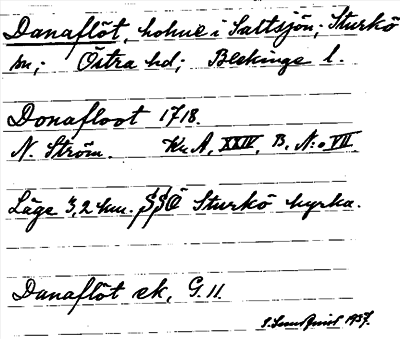 Danaflöt, holme i Saltsjön; Sturkö
sn; Östra hd; Blekinge l.
Donafloot 1718.
N. Ström. Kr. A. XXIV, B, N:o VII
Läge 3,2 km. SSÖ Sturkö kyrka.
Danaflöt ek, G. 11.
S. Lundquist 1937.